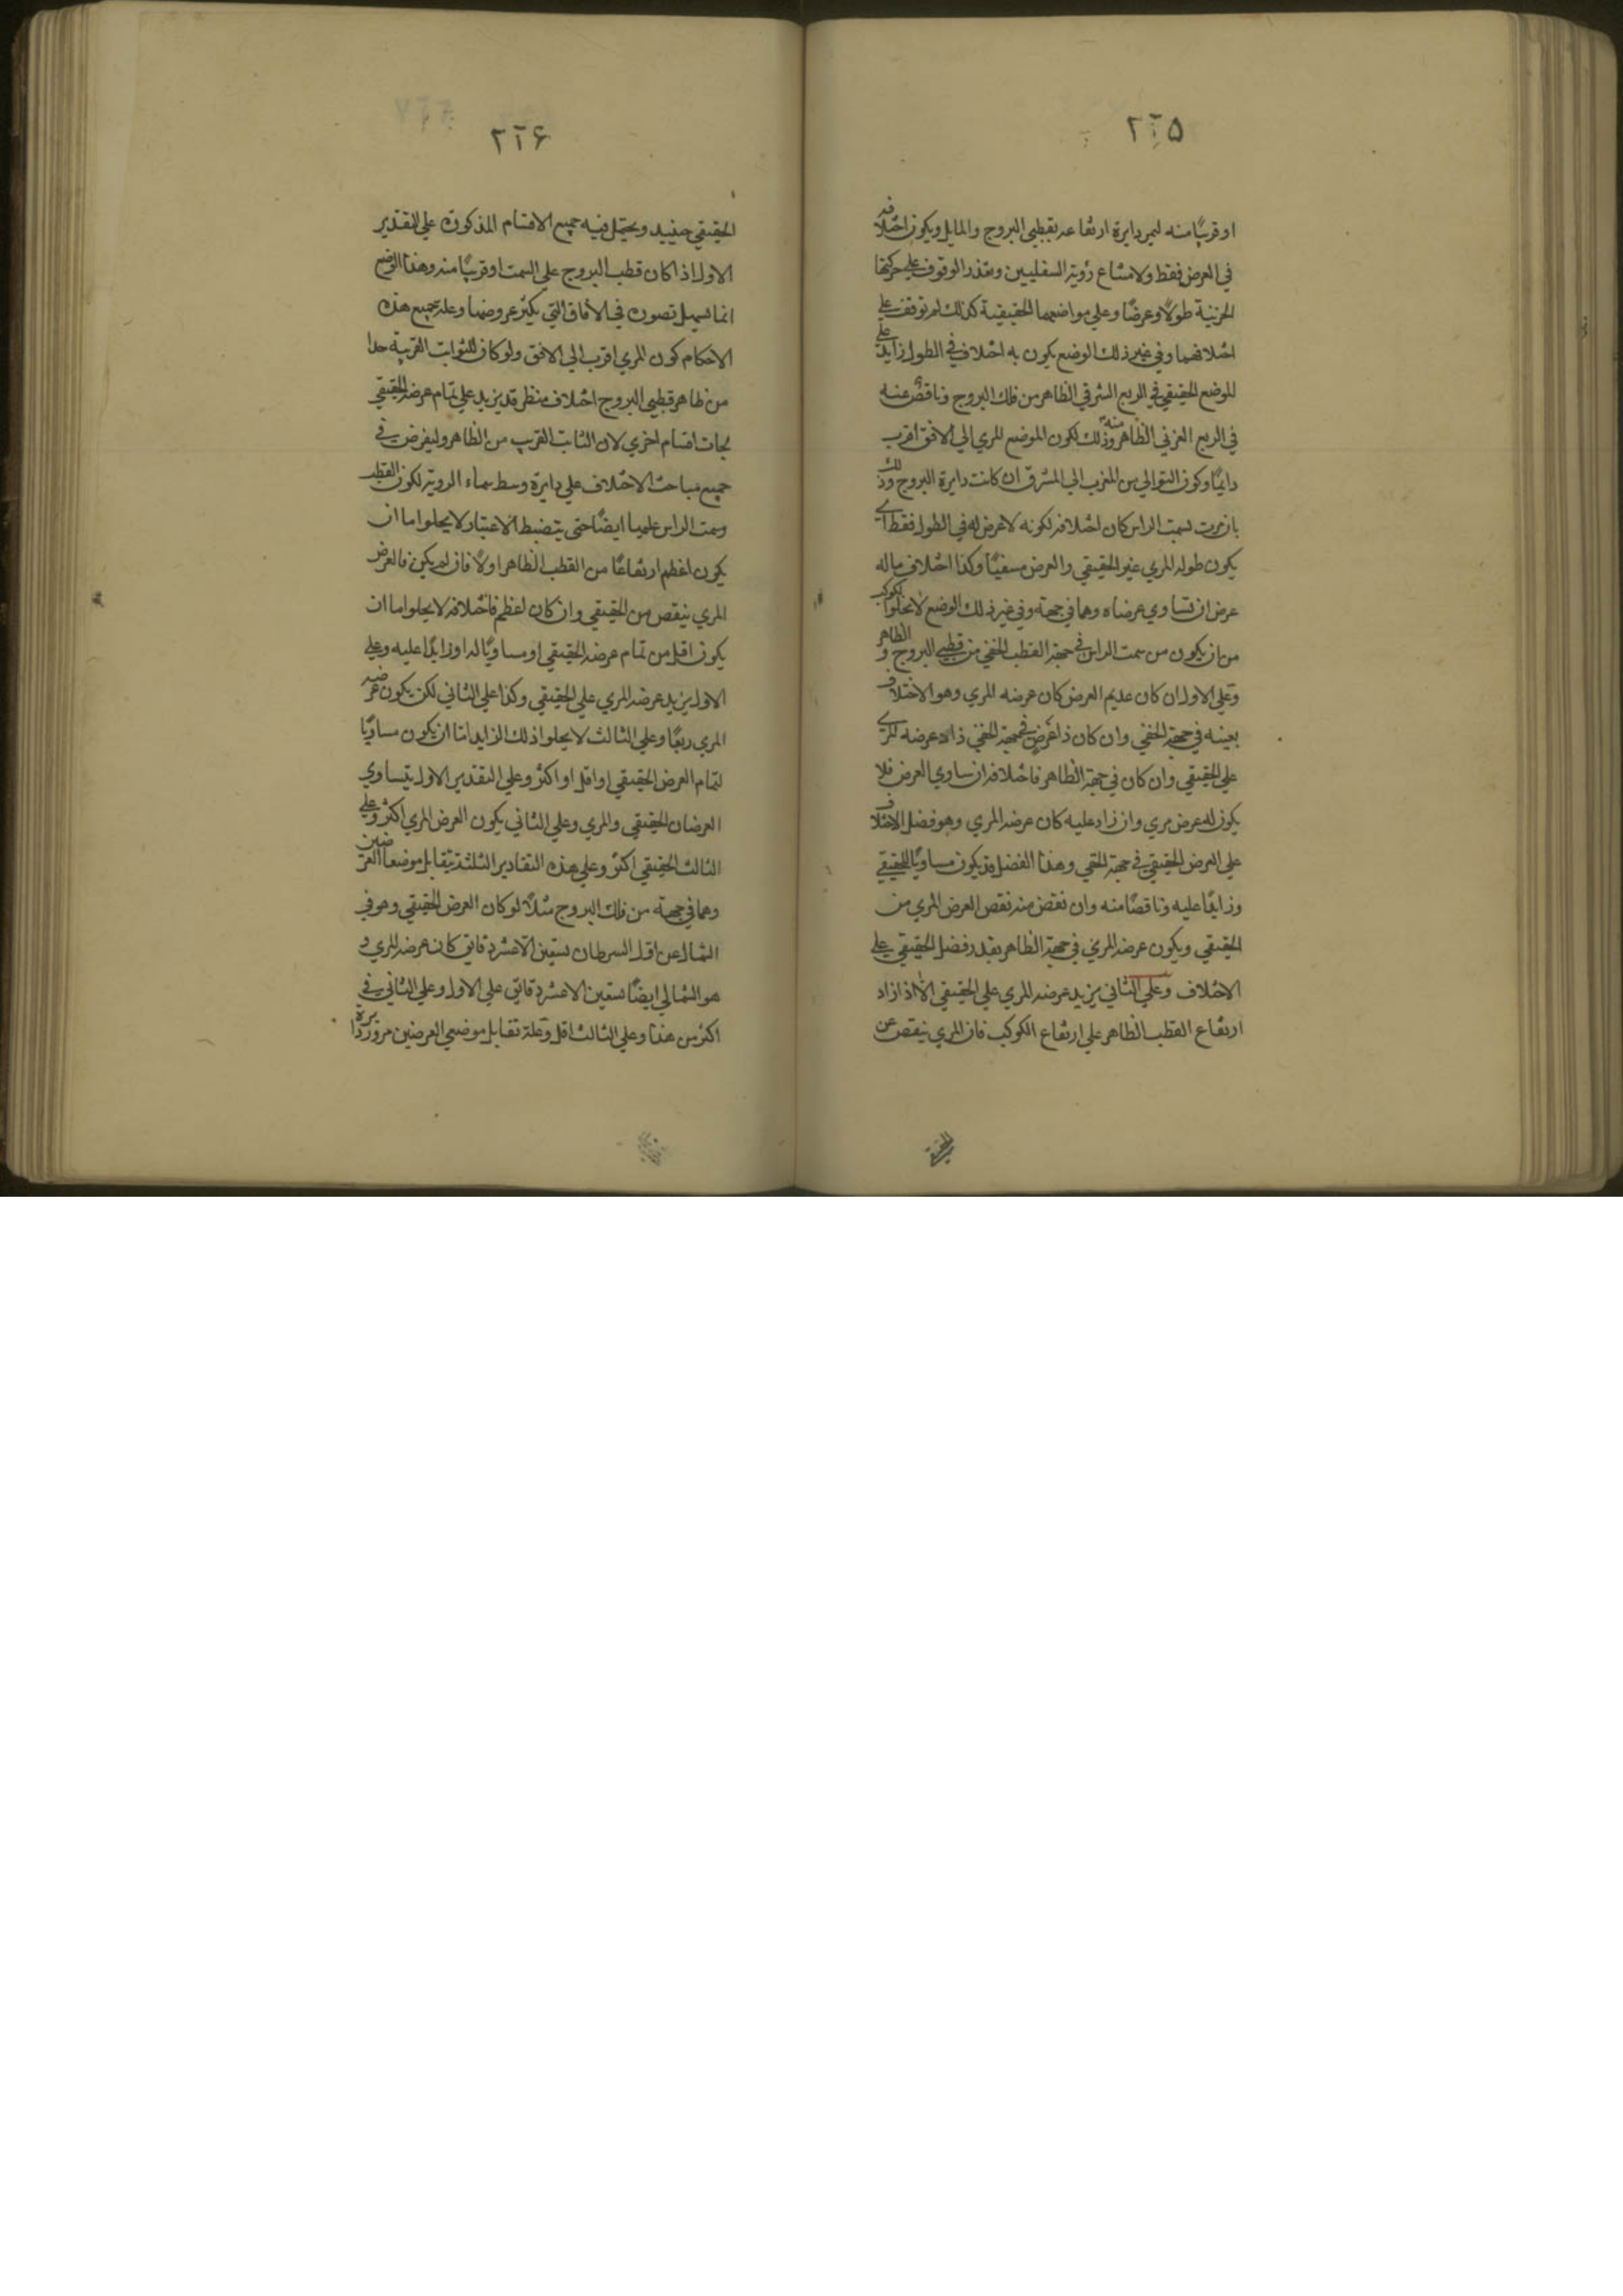 ٢٢٥
او قريبًا منه ليمر دايرة ارتفاعه بقطبي البروج والمايل ويكون اختلافه
في العرض فقط ولامتناع رؤية السفليين وتعذر الوقوف علي حركتها
الجزئية طولًا وعرضًا وعلي مواضعهما الحقيقية كذلك لم نوقف علي
اختلافهما وفي غير ذلك الوضع يكون به اختلاف في الطول زايد علي
الموضع الحقيقي في الربع الشرقي الظاهر من فلك البروج وناقص عنه
في الربع الغربي الظاهر منه وذلك لكون الموضع المري الي الافق اقرب
دايمًا وكون التوالي من المغرب الي المشرق ان كانت دايرة البروج وذلك
بان مرت بسمت الراس كان اختلافه لكونه لا عرض له في الطول فقط اي
يكون طوله المري غير الحقيقي والعرض منفيًا وكذا اختلاف ماله
عرض ان تساوي عرضاه وهما في جهة وفي غير ذلك الوضع لا يخلوا الكوكب
من ان يكون من سمت الراس في جهة القطب الخفي من قطبي البروج و الظاهر
وعلي الاول ان كان عديم العرض كان عرضه المري وهو الاختلاف
بعينه في جهة الخفي وان كان ذا عرض في جهة الخفي زاد عرضه المري
علي الحقيقي وان كان في جهة الظاهر فاختلافه ان ساوي العرض فلا
يكون له عرض مري وان زاد عليه كان عرضه المري وهو فضل الاختلاف
علي العرض الحقيقي في جهة الخفي وهذا الفضل قد يكون مساويًا للحقيقي
وزايدًا عليه وناقصًا منه وان نقص منه نقص العرض المري من
الحقيقي ويكون عرضه المري في جهة الظاهر بقدر فضل الحقيقي علي
الاختلاف وعلي الثاني يزيد عرضه المري علي الحقيقي الا اذا زاد
ارتفاع القطب الظاهر علي ارتفاع الكوكب فان المري ينقص عن
الحقيقي
٢٢۶
الحقيقي حينيذ ويحتمل فيه جميع الاقسام المذكورة علي التقدير
الاول اذا كان قطب البروج علي السمت او قريبًا منه وهذا الوضع
انما يسهل تصوره في الآفاق التي يكثر عروضها وعلة جميع هذه
الاحكام كون المري اقرب الي الافق ولو كان للثوابت القريبة جدا
من ظاهر قطبي البروج اختلاف منظر قد يزيد علي تمام عرضه الحقيقي
لجات اقسام اخري لان الثابت القريب من الظاهر وليفرض في
جميع مباحث الاختلاف علي دايرة وسط سماء الروية لكون القطب
وسمت الراس عليها ايضًا حتي يتضبط الاعتبار لا يخلوا اما ان
يكون اعظم ارتفاعًا من القطب الظاهر اولًا فان لم يكن فالعرض
المري ينقص من الحقيقي وان كان اعظم فاختلافه لا يخلوا اما ان
يكون اقل من تمام عرضه الحقيقي او مساويًا له او زايدًا عليه وعلي
الاول يزيد عرضه المري علي الحقيقي وكذا علي الثاني لكن يكون عرضه
المري ربعًا وعلي الثالث لا يخلوا ذلك الزايد اما ان يكون مساويًا
لتمام العرض الحقيقي او اقل او اكثر وعلي التقدير الاول يتساوي
العرضان الحقيقي والمري وعلي الثاني يكون العرض المري اكثر وعلي
الثالث الحقيقي اكثر وعلي هذه التقادير الثلثة يتقابل موضعا العرضين
وهما في جهة من فلك البروج مثلًا لو كان العرض الحقيقي وهو في
الشمال عن اول السرطان تسعين الا عشر دقايق كان عرضه المري و
هو الشمالي ايضًا تسعين الا عشر دقايق علي الاول وعلي الثاني في
اكثر من هذا وعلي الثالث اقل وعلة تقابل موضعي العرضين مرور دايرة